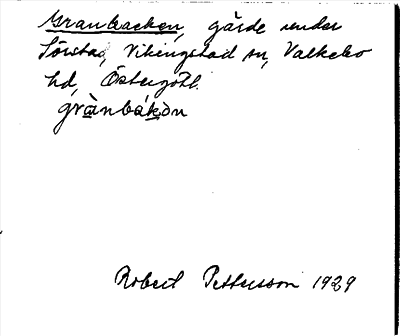 Granbacken, gärde under
Sörstad, Vikingstad sn, Valkebo
hd, Östergötl.
grànbákən
Robert Pettersson 1929